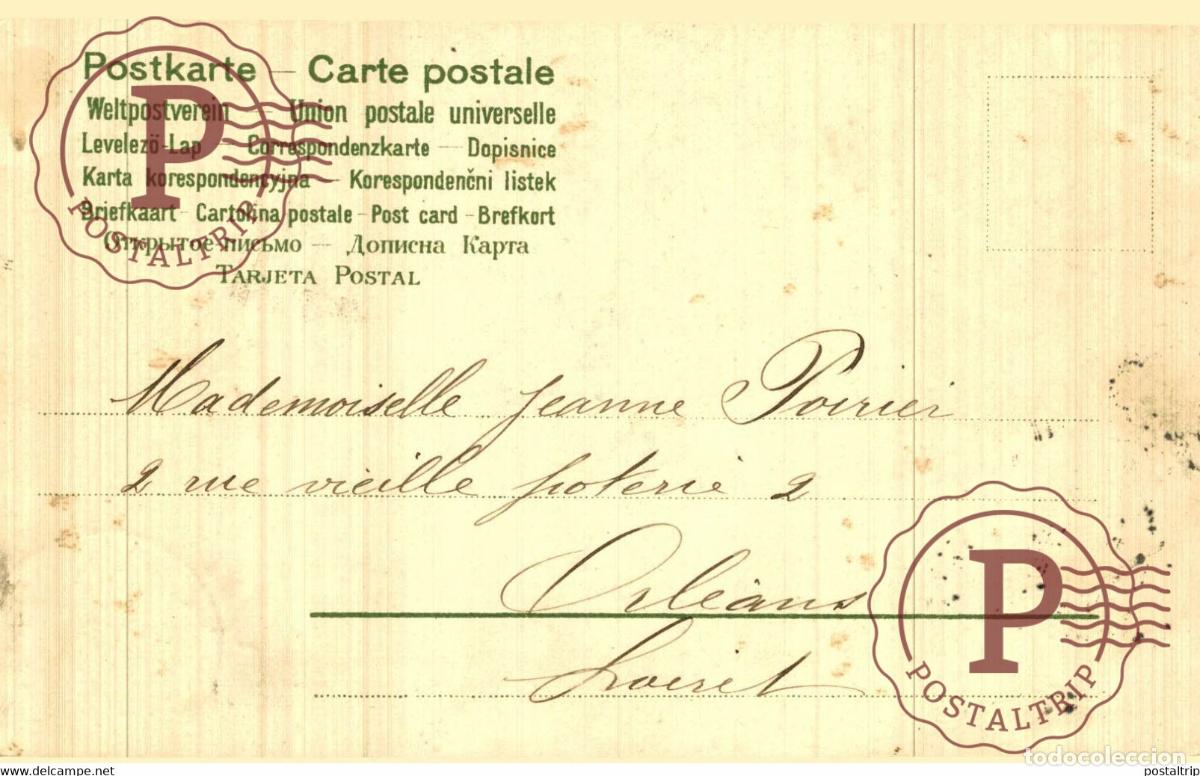 Postkarte – Carte postale
Weltpostverein – Union postale universelle
Levelező-Lap – Correspondenzkarte – Dopisnice
Karta korespondencyjna – Korespondenčni listek
Briefkaart – Cartolina postale – Post card – Brefkort
Открытое письмо – Дописна Карта
TARJETA POSTAL
Mademoiselle Jeanne Poirier
2 rue vieille poterie 2
Orléans
Loiret
P
POSTALTRIP
P
POSTALTRIP
todocoleccion
www.delcampe.net
postaltrip